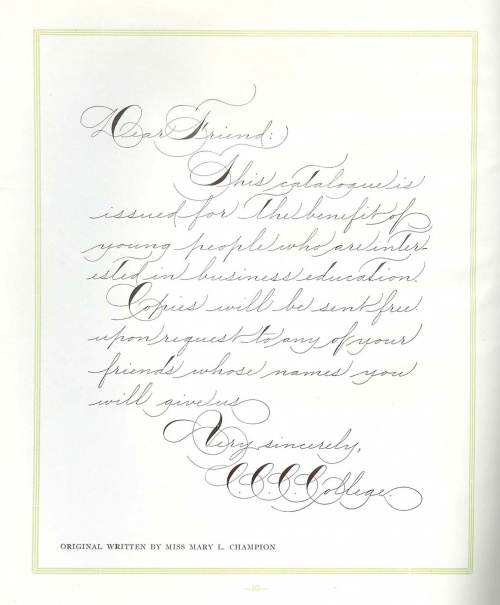 Dear Friend:
This catalogue is
issued for the benefit of
young people who are inter-
ested in business education.
Copies will be sent free
upon request to any of your
friends whose names you
will give us
Very sincerely,
C.C.C.College.
ORIGINAL WRITTEN BY MISS MARY L. CHAMPION
—10—